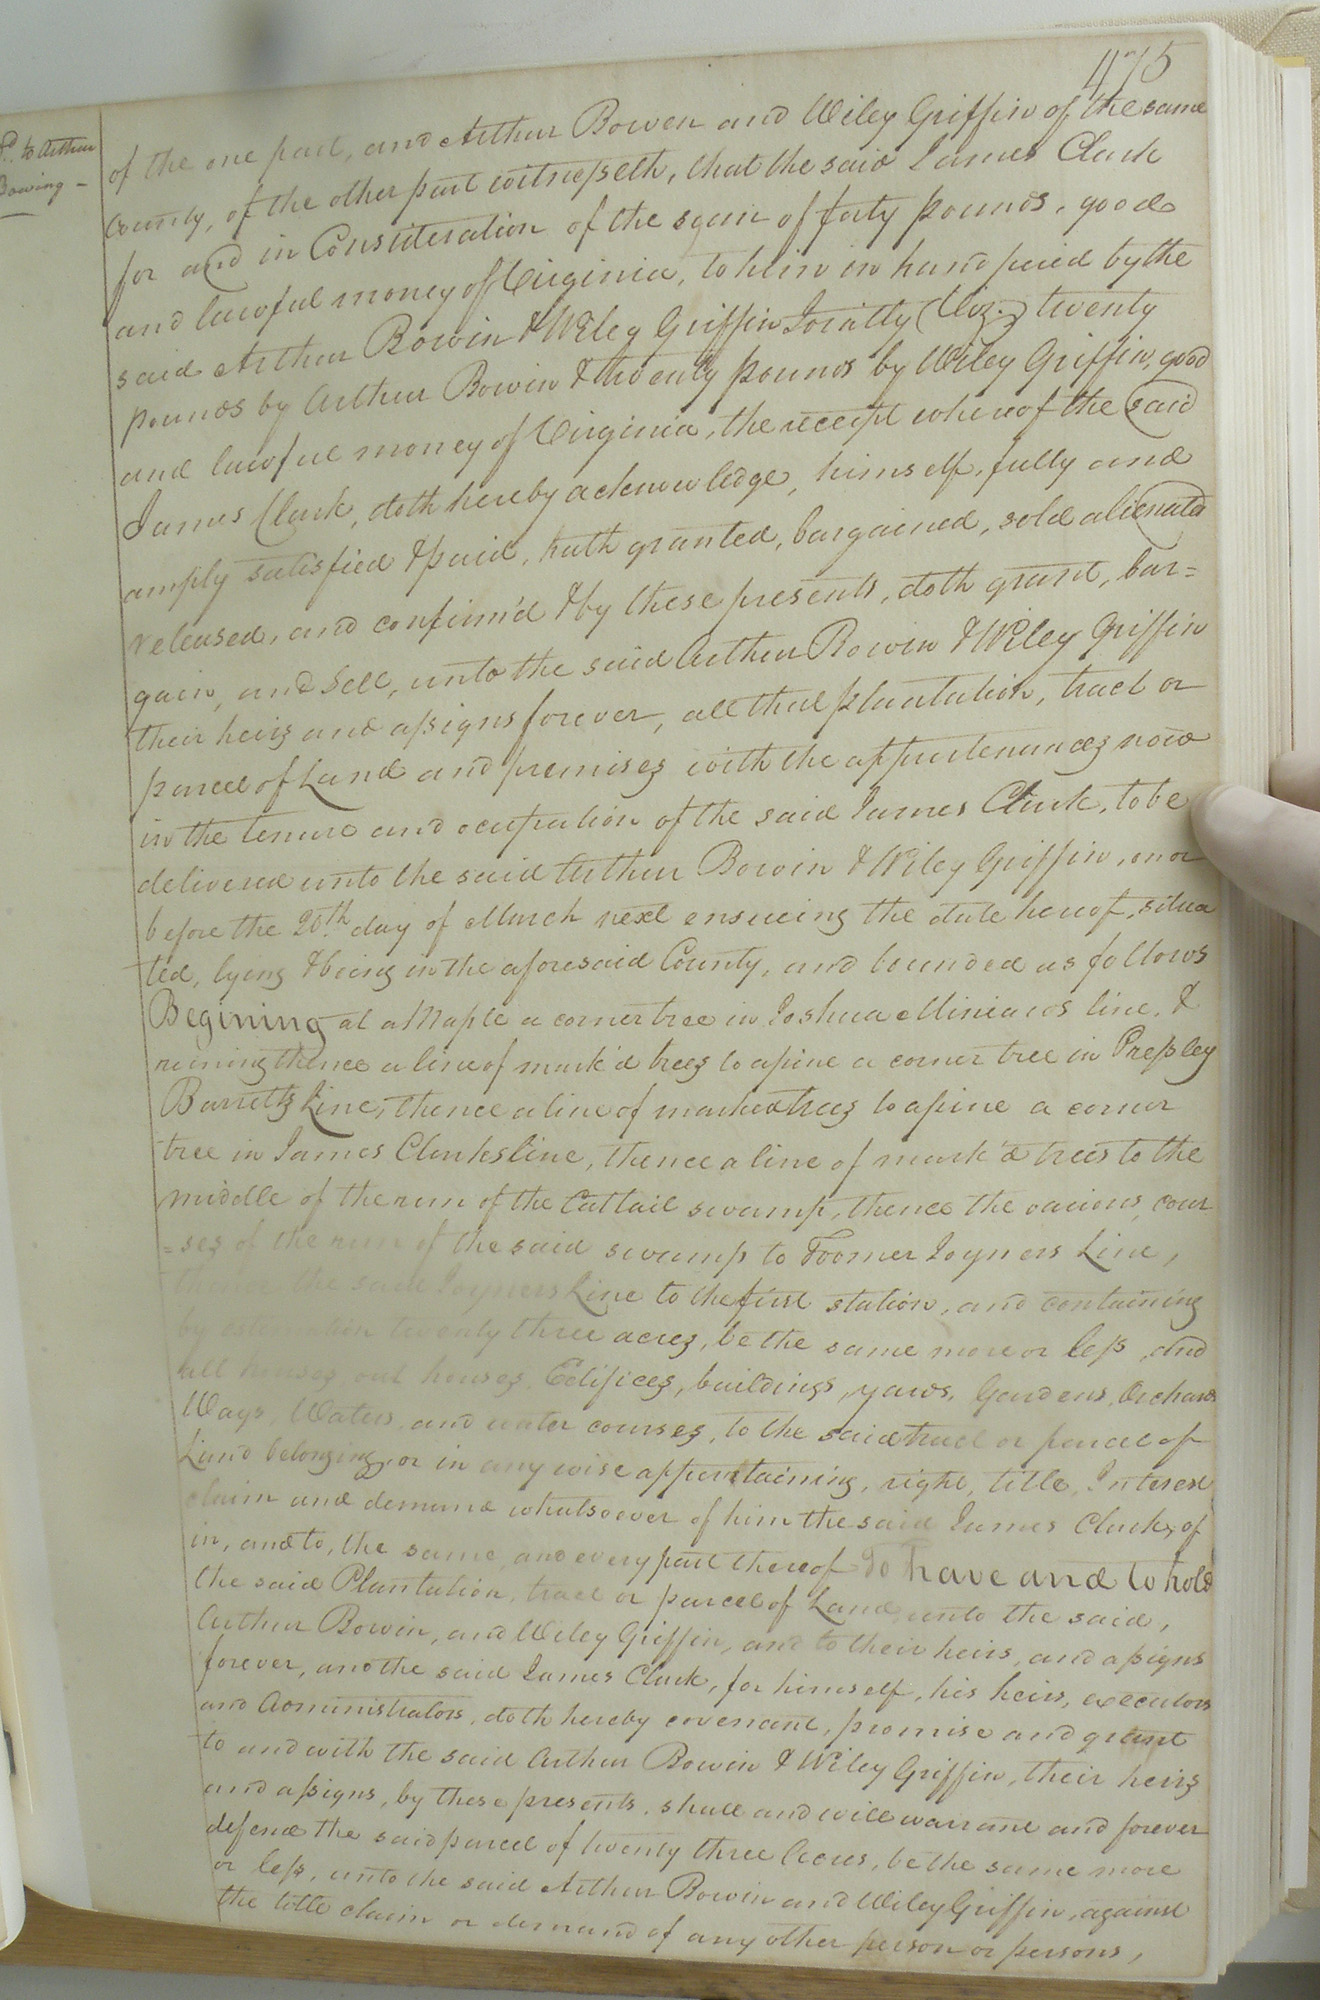 475
d. to Arthur
Bowing -
of the one part, and Arthur Bowen and Wiley Griffin of the same
County, of the other part witnesseth, that the said James Clark
for and in Consideration of the sum of forty pounds, good
and lawful money of Virginia, to him in hand paid by the
said Arthur Bowin & Wiley Griffin Jointly (Viz.) twenty
pounds by Arthur Bowin & twenty pounds by Wiley Griffin, good
and lawful money of Virginia, the receipt whereof the said
James Clark, doth hereby acknowledge, himself, fully and
amply satisfied & paid, hath granted, bargained, sold alienated
released, and confirm'd & by these presents, doth grant, bar=
gain, and Sell, unto the said Arthur Bowin & Wiley Griffin
their heirs and assigns forever, all that plantation, tract or
parcel of Land and premises with the appurtenances now
in the tenure and ocupation of the said James Clark, to be
delivered unto the said Arthur Bowin & Wiley Griffin, on or
before the 20th day of March next ensueing the date hereof, situa
ted, lying & being in the aforesaid County, and bounded as follows
Begining at a Maple a corner tree in Joshua Miniards line, &
runing thence a line of mark'd trees to a pine a corner tree in Pressley
Barretts Line, thence a line of marked trees to a pine a corner
tree in James Clarks line, thence a line of mark'd trees to the
middle of the run of the Cattail swamp, thence the various cour
=ses of the run of the said swamp to Toomer Joyners Line,
thence the said Joyners Line to the first station, and containing
by estimation twenty three acres, be the same more or less, and
all houses, out houses, Edifices, buildings, yards, Gardens, Orchards
Ways, Waters, and water courses, to the said tract or parcel of
Land belonging, or in any wise appurtaining, right, title, Interest
claim and demand whatsoever of him the said James Clark, of
in, and to, the same, and every part thereof To have and to hold
the said Plantation, tract or parcel of Land unto the said,
Arthur Bowin, and Wiley Griffin, and to their heirs, and assigns
forever, and the said James Clark, for himself, his heirs, executors
and Administrators, doth hereby covenant, promise and grant
to and with the said Arthur Bowin & Wiley Griffin, their heirs
and assigns, by these presents, shall and will warrant and forever
defend the said parcel of twenty three Acres, be the same more
or less, unto the said Arthur Bowin and Wiley Griffin, against
the title claim or demand of any other person or persons,